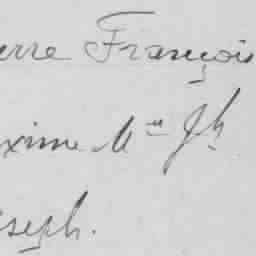 erre François
xime Mie Jh
oseph.